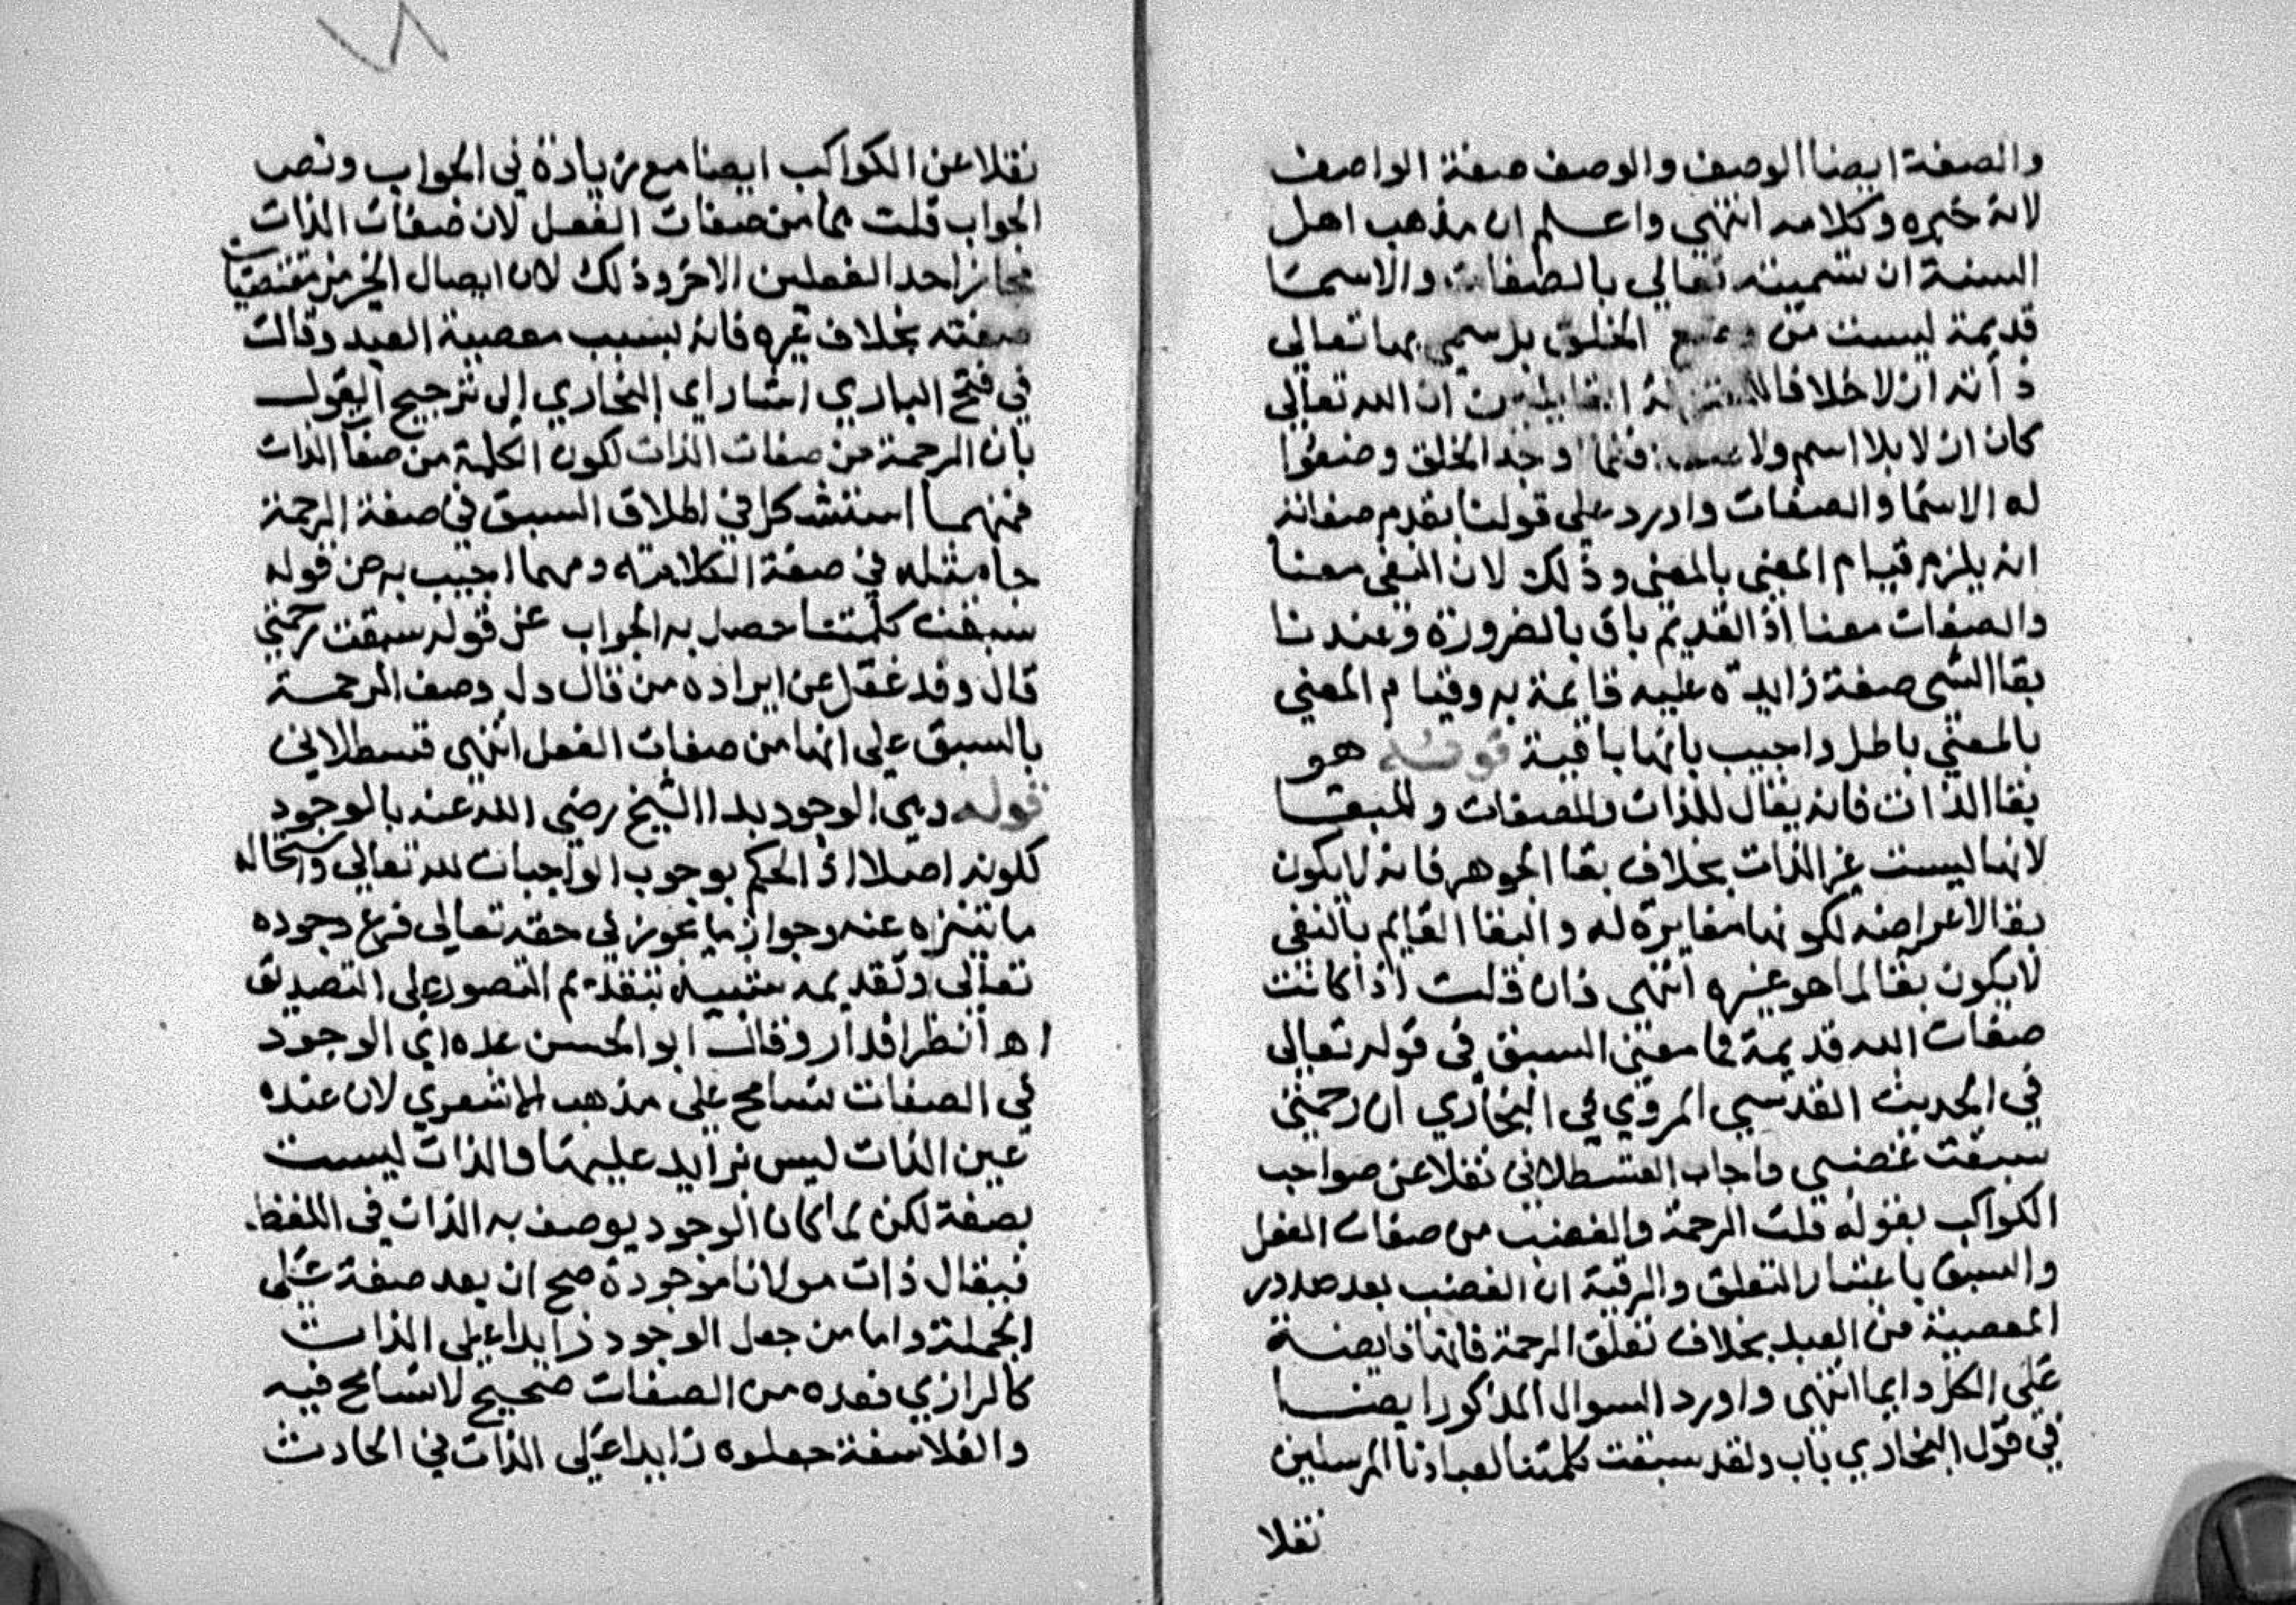 والصفة ايضا الوصف والوصف صفة الواصف
لانه خبره وكلامه انتهى واعلم ان مذهب اهل
السنة ان تسميته تعالى بالصفات والاسما
قديمة ليست من الخلق بل سمى بها تعالى
ذاته ازلا خلافا ان الله تعالى
كان ازلا بلا اسم ولا فلما اوجد الخلق وضعوا
له الاسما والصفات واورد على قولنا بقدم صفاته
انه يلزم قيام المعنى بالمعنى وذلك لان المنفى معنا
والصفات معنا اذ القديم باق بالضرورة وعندنا
بقا الشى صفة زايدة عليه قايمة به وقيام المعنى
بالمعنى باطل واجيب بانها باقية هو
بقا الذات فانه يقال للذات والصفات وللبقا
لانها ليست غير الذات بخلاف بقا الجوهر فانه لا يكون
بقا لاعراضه لكونها مغايرة له والبقا القايم بالنفى
لا يكون بقا لما هو غيره انتهى فان قلت اذا كانت
صفات الله قديمة فما معنى السبق في قوله تعالى
في الحديث القدسي المروي في البخاري ان رحمتي
سبقت غضبي واجاب القسطلاني نقلا عن صواحب
الكواكب بقوله قلت الرحمة والغضب من صفات الفعل
والسبق باعتبار التعلق والرقية ان الغضب بعد صدور
المعصية من العبد بخلاف تعلق الرحمة فانها فايضة
على الكل دايما انتهى واورد السوال المذكور ايضا
في قول البخاري باب ولقد سبقت كلمتنا لعبادنا المرسلين
نقلا
نقلا عن الكواكب ايضا مع زيادة في الجواب ونص
الجواب قلت هما من صفات الفعل لان صفات الذات
فجاز احد الفعلين الاخر وذلك لان ايصال الخير من مقتضيات
صفته بخلاف غيره فانه بسبب معصية العبد وقال
في فتح الباري اشار اى البخاري الى ترجيح القول
بان الرحمة من صفات الذات لكون الكلمة من صفا الذات
فمهما استشكل في اطلاق السبق في صفة الرحمة
جاء مثله في صفة الكلامة ومهما اجيب به عن قوله
سبقت كلمتنا حصل به الجواب عن قوله سبقت رحمتي
قال وقد غفل عن ايراده من قال دل وصف الرحمة
بالسبق على انها من صفات الفعل انتهى قسطلاني
قوله وهى الوجود بدا الشيخ رضي الله عنه بالوجود
لكونه اصلا اذ الحكم بوجوب الواجبات لله تعالى واستحالة
ما تنزه عنه وجواز ما يجوز في حقه تعالى فرع وجوده
تعالى وتقديمه شبيه بتقديم التصور على التصديق
اه انظر اقدار وقال ابو الحسن عده اي الوجود
في الصفات تسامح على مذهب الاشعري لان عنده
عين الذات ليس بزايد عليها والذات ليست
بصفة لكن لما كان الوجود يوصف به الذات في اللفظ
فيقال ذات مولانا موجودة صح ان يعد صفة على
الجملة واما من جعل الوجود زايدا على الذات
كالرازي فعده من الصفات صحيح لا تسامح فيه
والفلاسفة جعلوه زايدا على الذات في الحادث